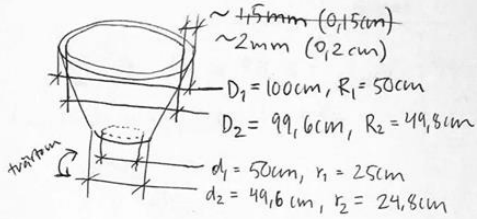 ~ 1,5mm (0,15cm)
~2mm (0,2cm)
D₁ = 100cm, R₁ = 50cm
D₂ = 99,6cm, R₂ = 49,8cm
tvärtom
d₁ = 50cm, r₁ = 25cm
d₂ = 49,6cm, r₂ = 24,8cm